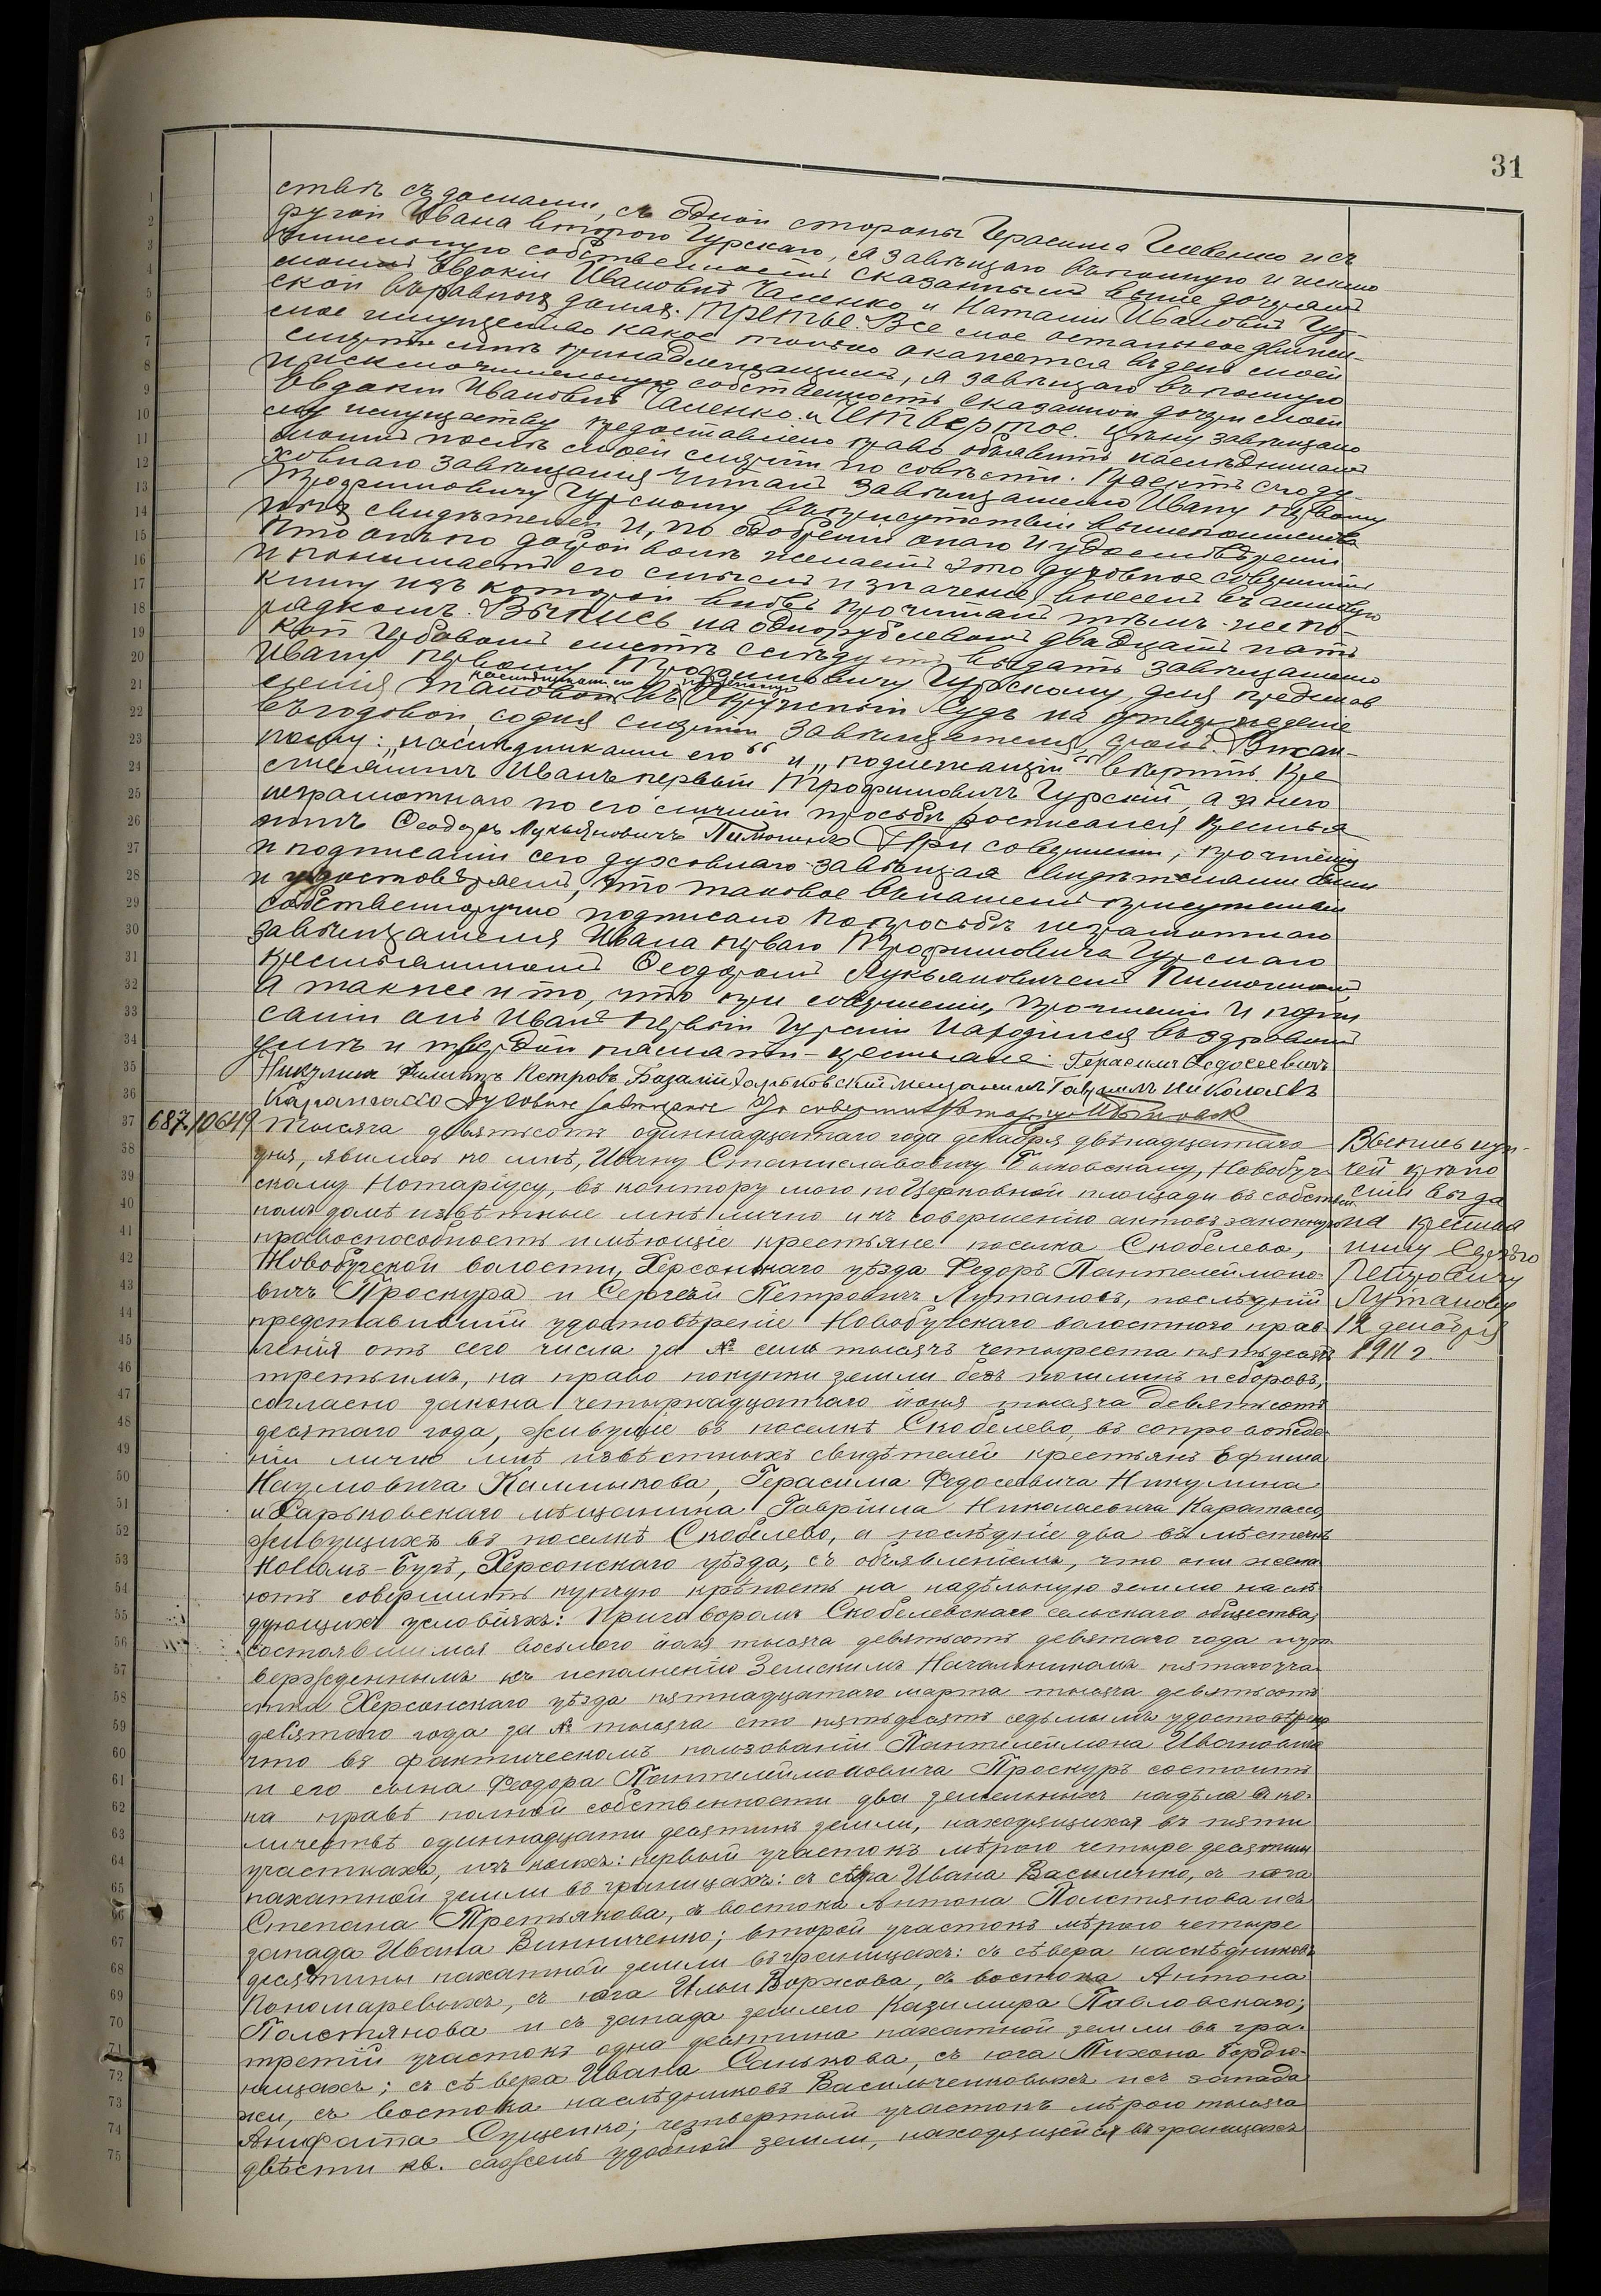 31
ствѣ съ досками, съ одной стороны Герасима Шевенко и съ
другой Ивана второго Гурскаго, я завѣщаю въ полную и исклю
чительную собственность сказаннымъ выше дочерямъ
моимъ Евдокіи Ивановнѣ Чаленко и Наталіи Ивановнѣ Гур-
ской въ равныхъ доляхъ. Третье. Все мое остальное движи-
мое имущество какое только окажется въ день моей
смерти мнѣ принадлежащимъ, я завѣщаю въ полную
и исключительную собственность сказанной дочери моей
Евдокіи Ивановнѣ Чаленко и Четвертое. Цѣну завѣщаемо
му имуществу предоставлено право объявить наслѣдникамъ
моимъ послѣ моей смерти по совѣсти. Проектъ сего ду-
ховнаго завѣщанія читанъ завѣщателю Ивану первому
Трофимовичу Гурскому въ присутствіи вышепоименован
ныхъ свидѣтелей и, по одобреніи онаго и удостовѣреніи
что онъ по доброй волѣ желаетъ это духовное совершить
и понимаетъ его смыслъ и значеніе, внесенъ въ актовую
книгу изъ которой вновь прочитанъ тѣмъ-же по-
рядкомъ. Выпись на однорублевомъ двадцати пяти
коп гербовомъ листѣ слѣдуетъ выдать завѣщателю
Ивану первому Трофимовичу Гурскому, для представ
наслѣдниками его подлежащій
ленія таковой въ Окружный Судъ на утвержденіе
въ годовой со дня смерти завѣщателя срокъ. Вписан-
ному: „наслѣдниками его" и „подлежащій" вѣрить. Кре
стьянинъ Иванъ первый Трофимовичъ Гурскій, а за него
неграмотнаго по его личной просьбѣ росписался крестья
нинъ Феодоръ Лукьяновичъ Пимонинъ При совершеніи, прочтеніи
и подписаніи сего духовнаго завѣщанія свидѣтелями были
и удостовѣряемъ, что таковое въ нашемъ присутствіи
собственноручно подписано по просьбѣ неграмотнаго
завѣщателя Ивана перваго Трофимовича Гурскаго
крестьяниномъ Феодоромъ Лукьяновичемъ Пимонинымъ,
а также и то, что при совершеніи, прочтеніи и подпи
саніи онъ Иванъ первый Гурскій находился въ здравомъ
умѣ и твердой памяти - крестьяне: Герасимъ Федосеевичъ
Никулинъ Филиппъ Петровъ Базалій Харьковскій мещанинъ Гавріилъ Николаевъ
Каратассо Духовное завѣщание это совершилъ Нотаріусъ
687. 10649 Тысяча девятьсотъ одиннадцатаго года декабря двѣнадцатаго
дня, явились ко мнѣ, Ивану Станиславовичу Быковскому, Новобуг-
скому Нотаріусу, въ контору мою по Церковной площади въ собствен
номъ домѣ извѣстные мнѣ лично и къ совершенію актовъ законную
правоспособность имѣющіе крестьяне поселка Скобелево,
Новобугской волости, Херсонскаго уѣзда Федоръ Пантелеймоно-
вичъ Проскура и Сергей Петровичъ Лутановъ, послѣдній
представившій удостовѣреніе Новобугскаго волостного прав
ленія отъ сего числа за № семь тысячъ четыреста пятьдесятъ
третьимъ, на право покупки земли безъ пошлинъ и сборовъ,
согласно закона четырнадцатаго іюня тысяча девятьсотъ
десятаго года, живущіе въ поселкѣ Скобелево, въ сопровожде
ніи лично мнѣ извѣстныхъ свидѣтелей крестьянъ Ефима
Наумовича Калмыкова, Герасима Федосеевича Никулина
и Харьковскаго мѣщанина Гавріила Николаевича Каратассо,
живущихъ въ поселкѣ Скобелево, а послѣдніе два въ мѣстечкѣ
Новомъ-Бугѣ, Херсонскаго уѣзда, съ объявленіемъ, что они жела
ютъ совершить купчую крѣпость на надѣльную землю на слѣ
дующихъ условіяхъ: Приговоромъ Скобелевскаго сельскаго общества,
состоявшимся восьмого мая тысяча девятьсотъ девятаго года и ут
вержденнымъ къ исполненію Земскимъ Начальникомъ пятаго уча-
стка Херсонскаго уѣзда пятнадцатаго марта тысяча девятьсотъ
девятаго года за № тысяча сто пятьдесятъ седьмымъ удостовѣрено
что въ фактическомъ пользованіи Пантелеймона Ивановича
и его сына Феодора Пантелеймоновича Проскуръ состоитъ
на правѣ полной собственности два земельныхъ надѣла въ ко-
личествѣ одиннадцати десятинъ земли, находящихся въ пяти
участкахъ, изъ коихъ: первый участокъ мѣрою четыре десятины
пахатной земли въ границахъ: съ сѣвера Ивана Василенко, съ юга
Степана Третьякова, съ востока Антона Полстянова и съ
запада Ивана Винниченко; второй участокъ мѣрою четыре
десятины пахатной земли въ границахъ: съ сѣвера наслѣдниковъ
Пономаревыхъ, съ юга Ильи Воржова, съ востока Антона
Полстянова и съ запада землею Казимира Павловскаго;
третій участокъ одна десятина пахатной земли въ гра-
ницахъ; съ сѣвера Ивана Санькова, съ юга Тихона Бердю-
жи, съ востока наслѣдниковъ Васильченковыхъ и съ запада
Анифата Сущенко; четвертый участокъ мѣрою тысяча
двѣсти кв. сажень удобной земли, находящейся въ границахъ
Выпись куп-
чей крѣпо
сти выда
на крестья
нину Сергѣю
Петровичу
Лутанову
12 декабря
1911 г.